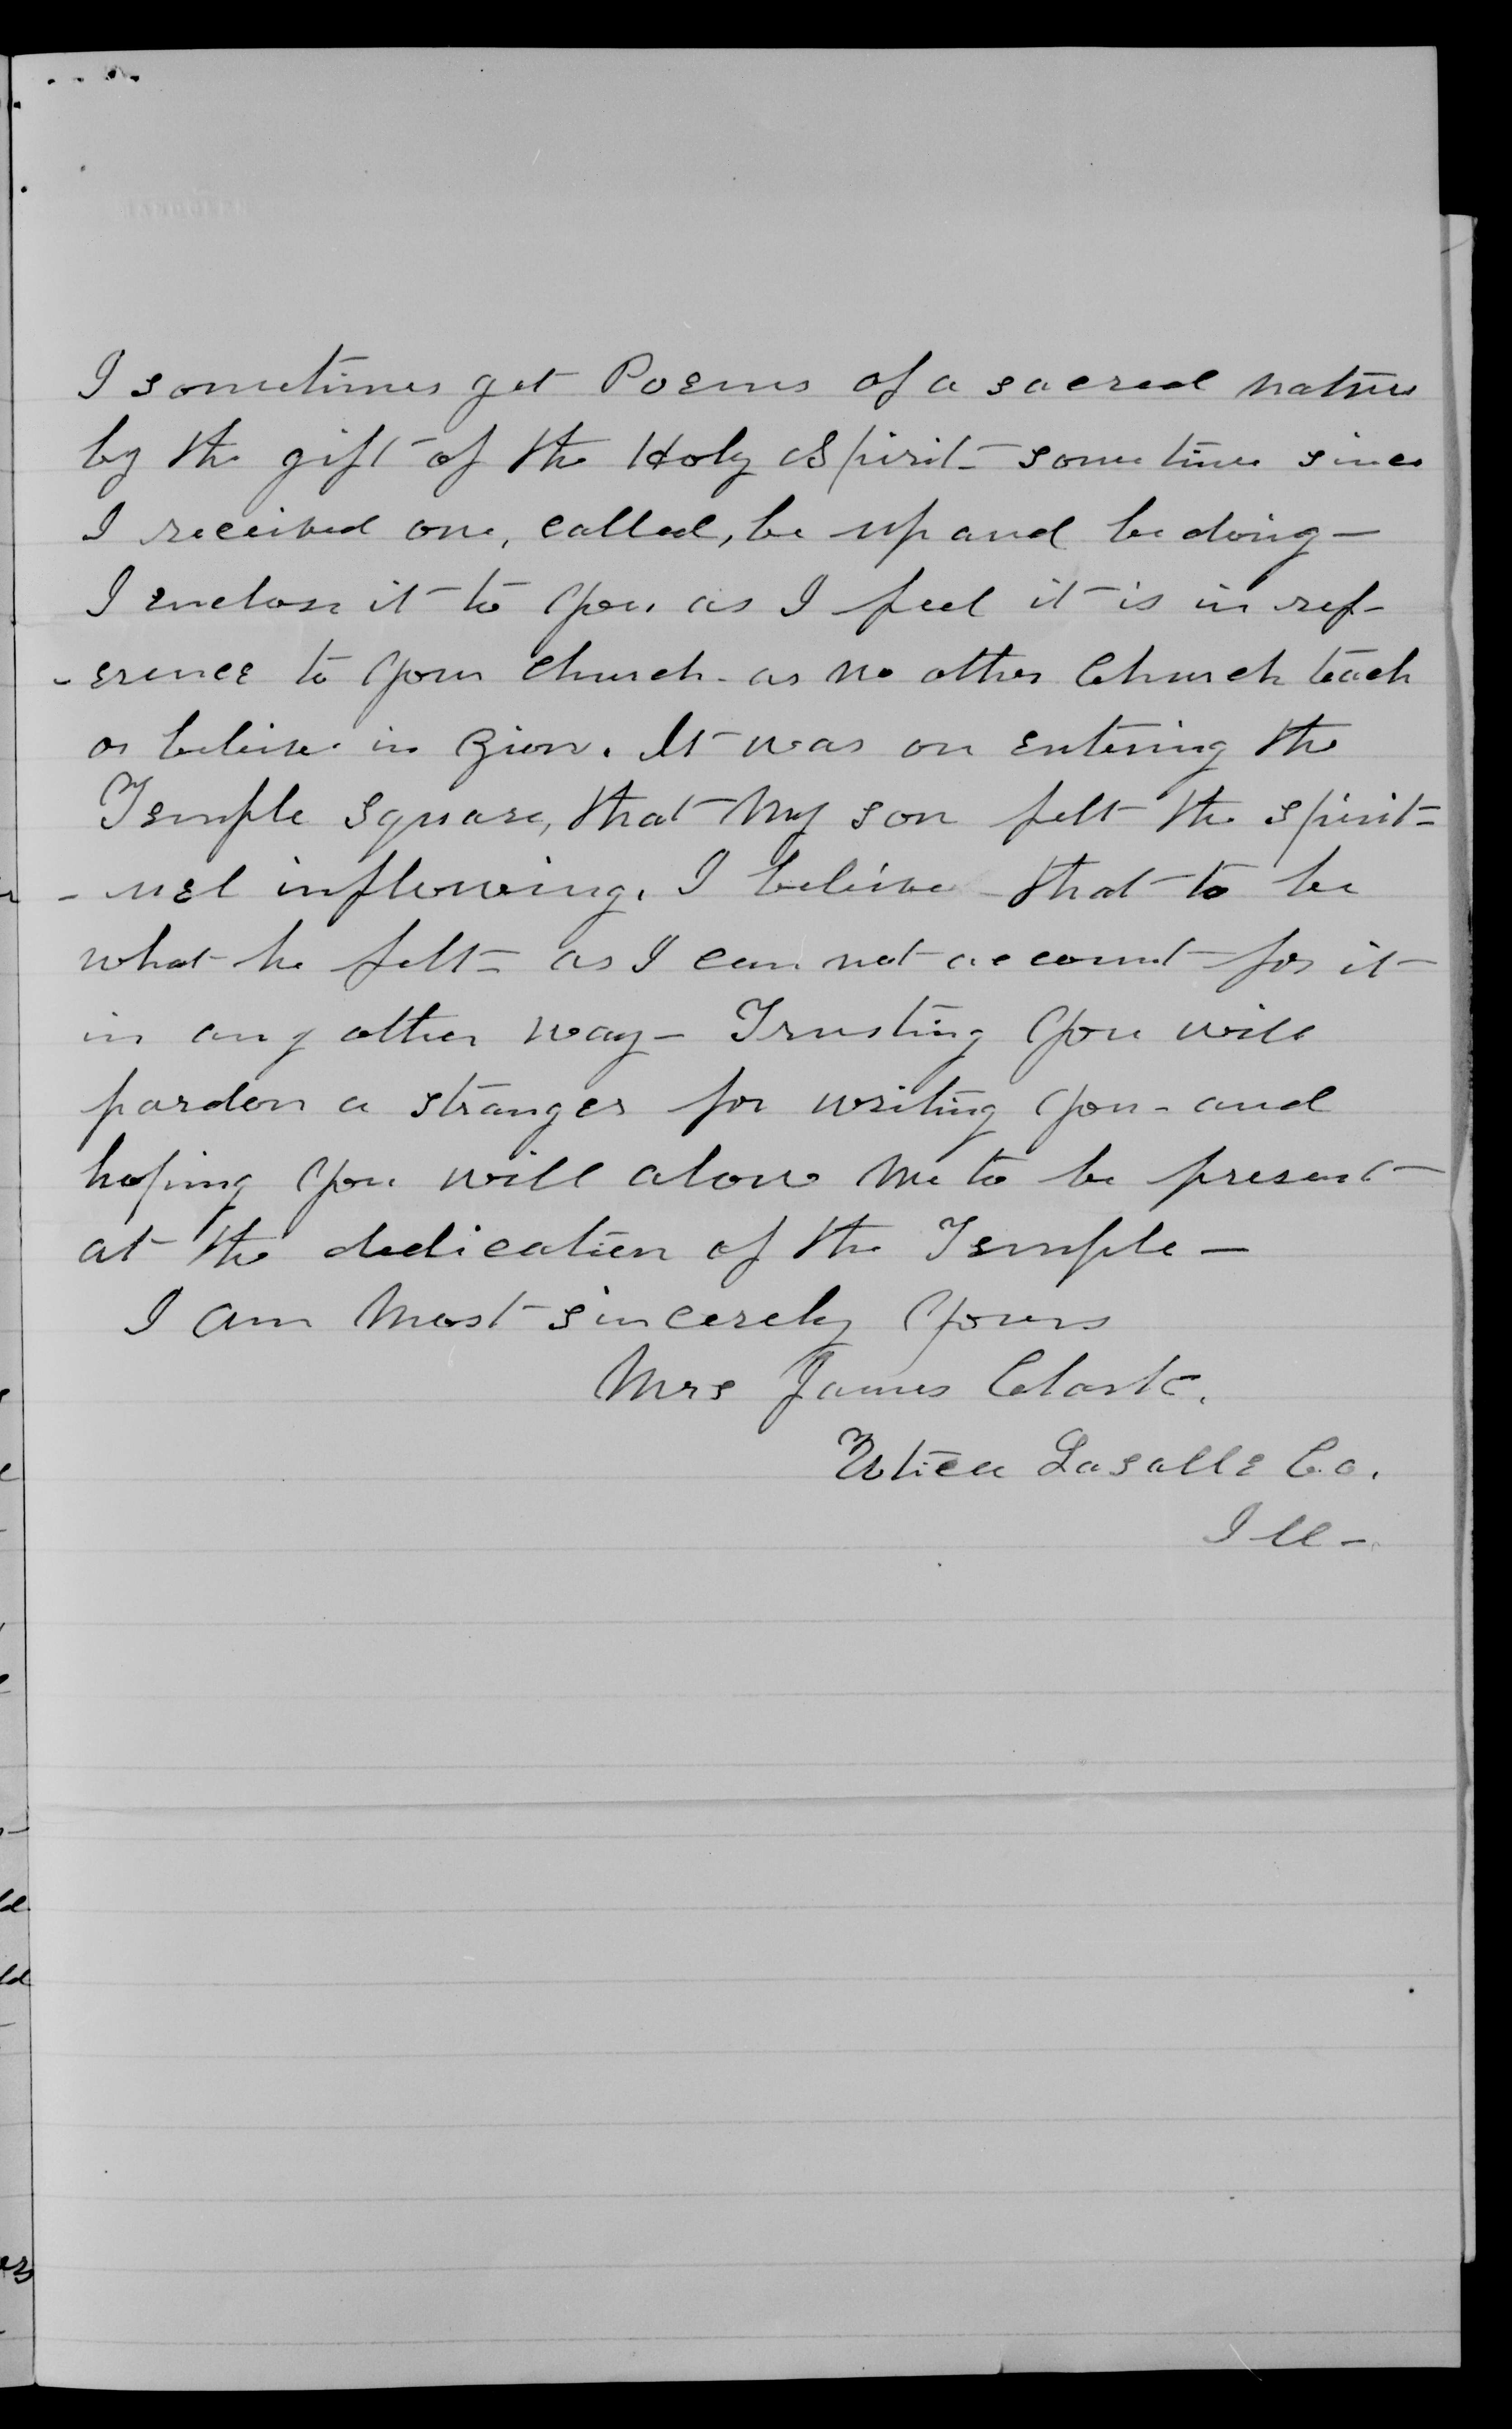 I sometimes get Poems of a sacred nature
by the gift of the Holy Spirit - sometime since
I received one, called, be up and be doing -
I enclose it to you as I feel it is in ref-
-erence to your church - as no other Church teach
or beleive in Zion. It was on entering the
Temple square, that My son felt the spirit-
-uel inflowing. I beleive that to be
what he felt - as I can not account for it
in any other way - Trusting you will
pardon a stranger for writing you - and
hoping you will alow me to be present
at the dedication of the Temple -
I am Most sincerely yours
Mrs James Clark.
Utica Lasalle Co.
Ill -